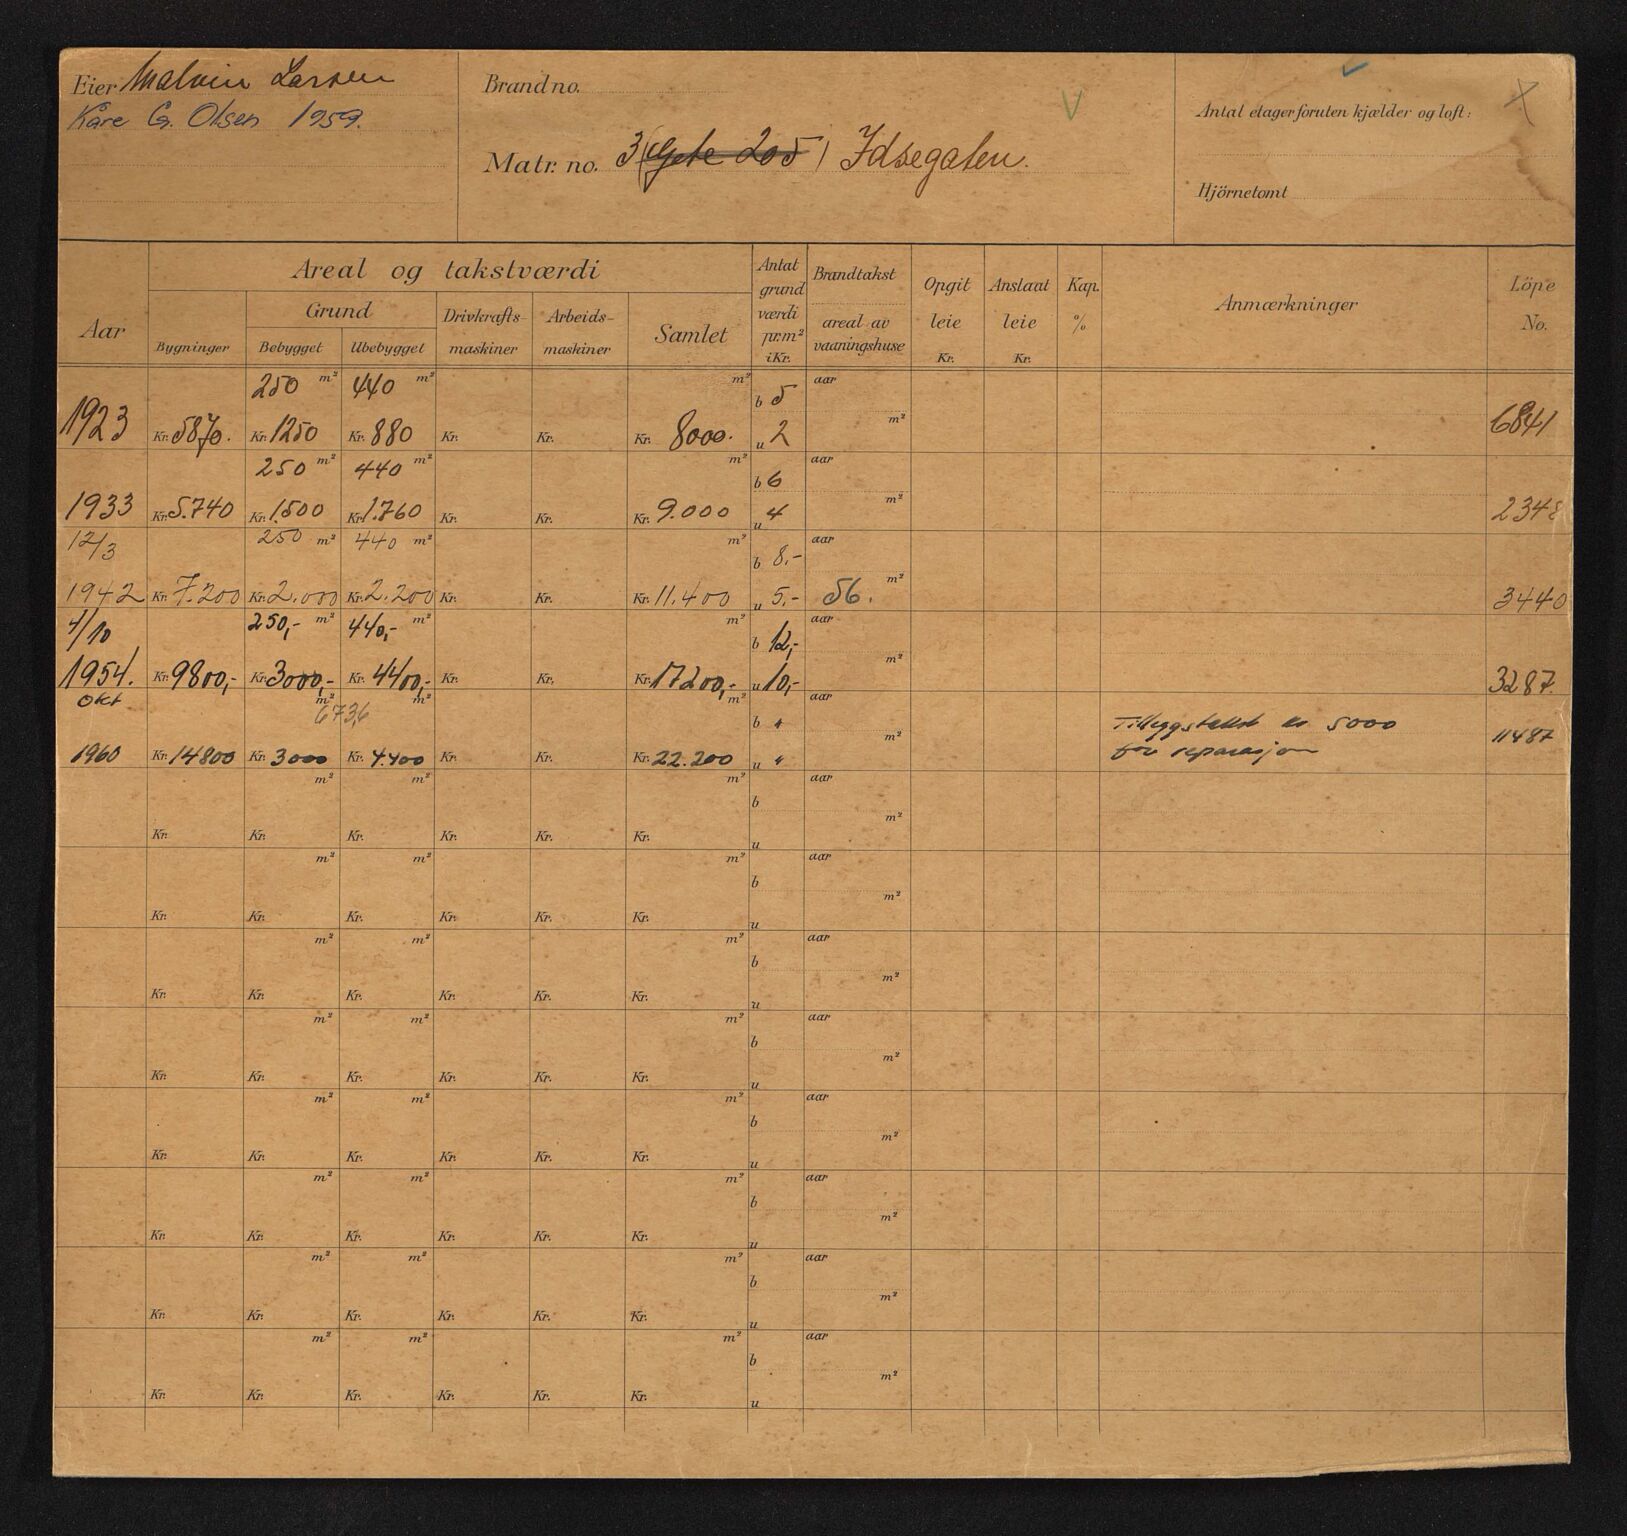 Eier Malvin Larsen
Kåre G. Olsen 1959.
Brand no.
Matr. no. 3 (Gate 205) Idsegaten.
Antal etager foruten kjælder og loft:
Hjörnetomt
Aar
Areal og takstværdi
Bygninger
Grund
Bebygget
Ubebygget
Drivkrafts-
maskiner
Arbeids-
maskiner
Samlet
Antat
grund
værdi
pr. m²
i Kr.
Brandtakst
areal av
vaaningshuse
Opgit
leie
Kr.
Anslaat
leie
Kr.
Kap.
%
Anmærkninger
Löpe
No.
250 m² 440 m² m² b 5 aar
m²
1923 Kr. 5870. Kr. 1250 Kr. 880 Kr. Kr. Kr. 8000. u 2 6841
250 m² 440 m² m² b 6 aar
m²
1933 Kr. 5.740 Kr. 1.500 Kr. 1.760 Kr. Kr. Kr. 9.000 u 4 2348
12/3 250 m² 440 m² m² b 8.- aar
m²
1942 Kr. 7.200 Kr. 2.000 Kr. 2.200 Kr. Kr. Kr. 11.400 u 5.- 56. 3440
4/10 250,- m² 440,- m² m² b 12,- aar
m²
1954. Kr. 9800,- Kr. 3000,- Kr. 4400,- Kr. Kr. Kr. 17200,- u 10,- 3287.
Okt m² 673,6 m² m² b " aar
m²
Tilleggstakst kr 5000
for reparasjon
1960 Kr. 14800 Kr. 3000 Kr. 4.400 Kr. Kr. Kr. 22.200 u " 11487
m² m² m² b aar
m²
Kr. Kr. Kr. Kr. Kr. Kr. u
m² m² m² b aar
m²
Kr. Kr. Kr. Kr. Kr. Kr. u
m² m² m² b aar
m²
Kr. Kr. Kr. Kr. Kr. Kr. u
m² m² m² b aar
m²
Kr. Kr. Kr. Kr. Kr. Kr. u
m² m² m² b aar
m²
Kr. Kr. Kr. Kr. Kr. Kr. u
m² m² m² b aar
m²
Kr. Kr. Kr. Kr. Kr. Kr. u
m² m² m² b aar
m²
Kr. Kr. Kr. Kr. Kr. Kr. u
m² m² m² b aar
m²
Kr. Kr. Kr. Kr. Kr. Kr. u